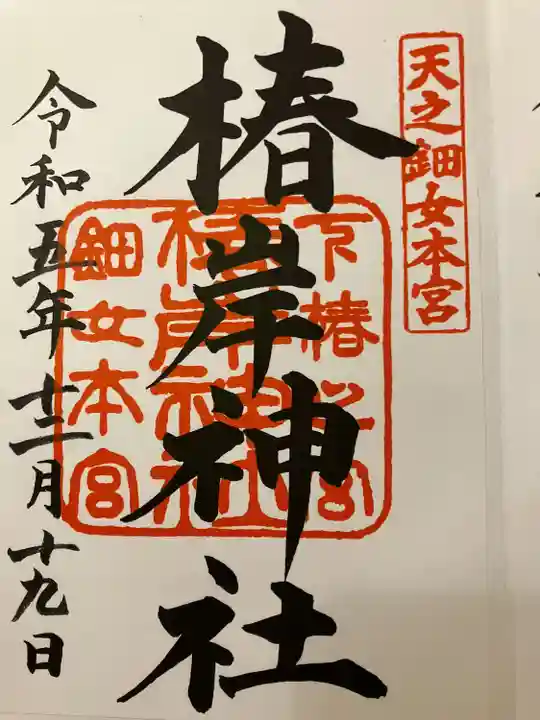 天之鈿女本宮
椿岸神社
下椿
宮
椿岸神社
鈿女本宮
令和五年十二月十九日